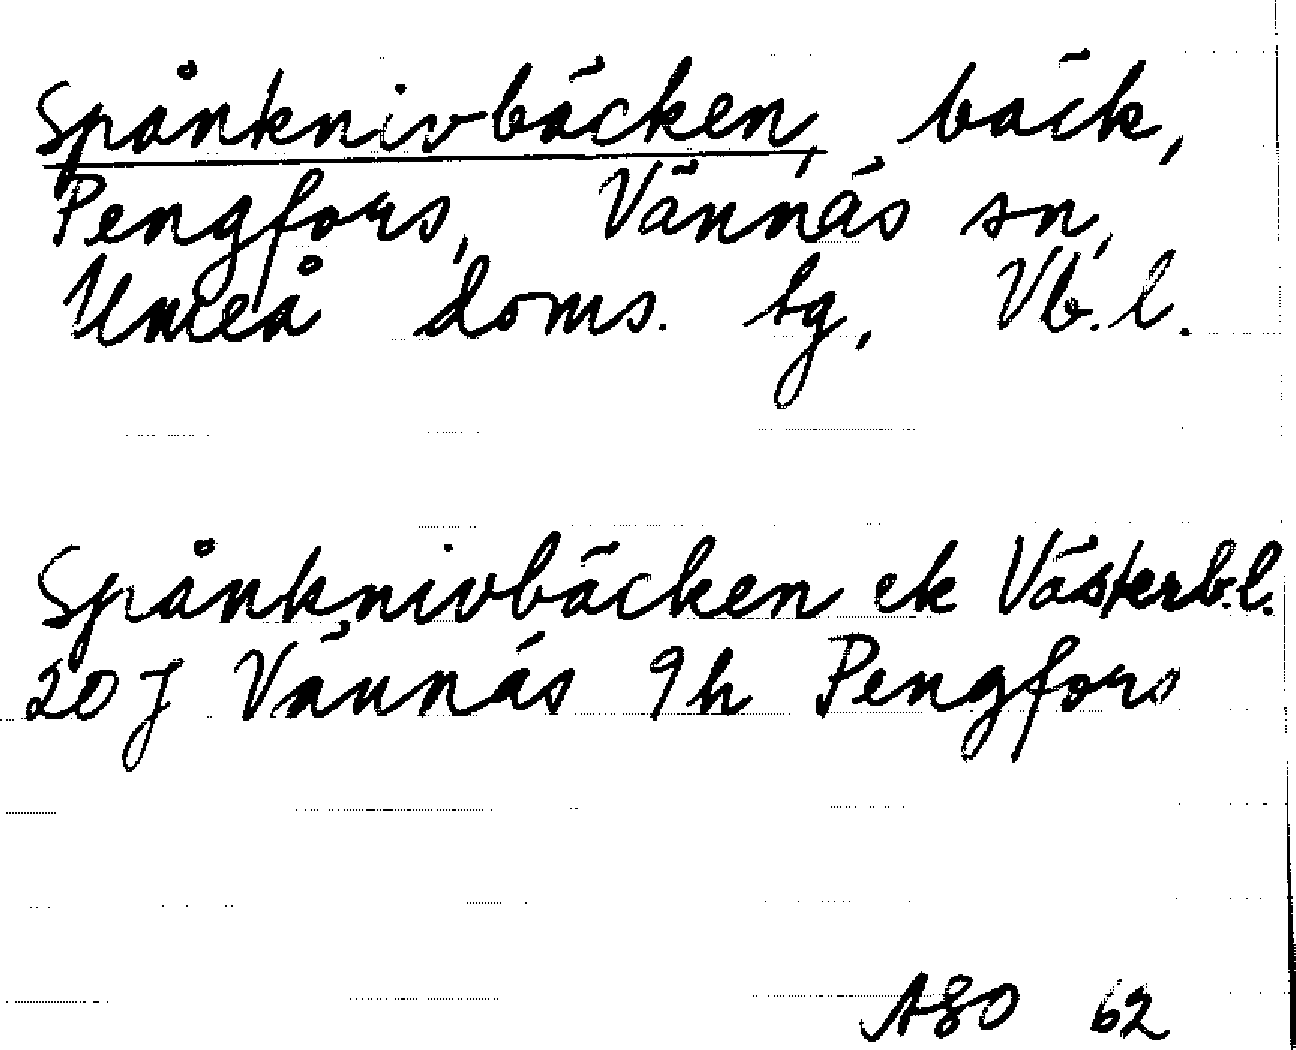 Spånknivbäcken, bäck,
Pengfors, Vännäs sn,
Umeå doms. sg, Vb. l.
Spånknivbäcken ek Västerb.l.
20 J Vännäs 9h Pengfors
ASO 62